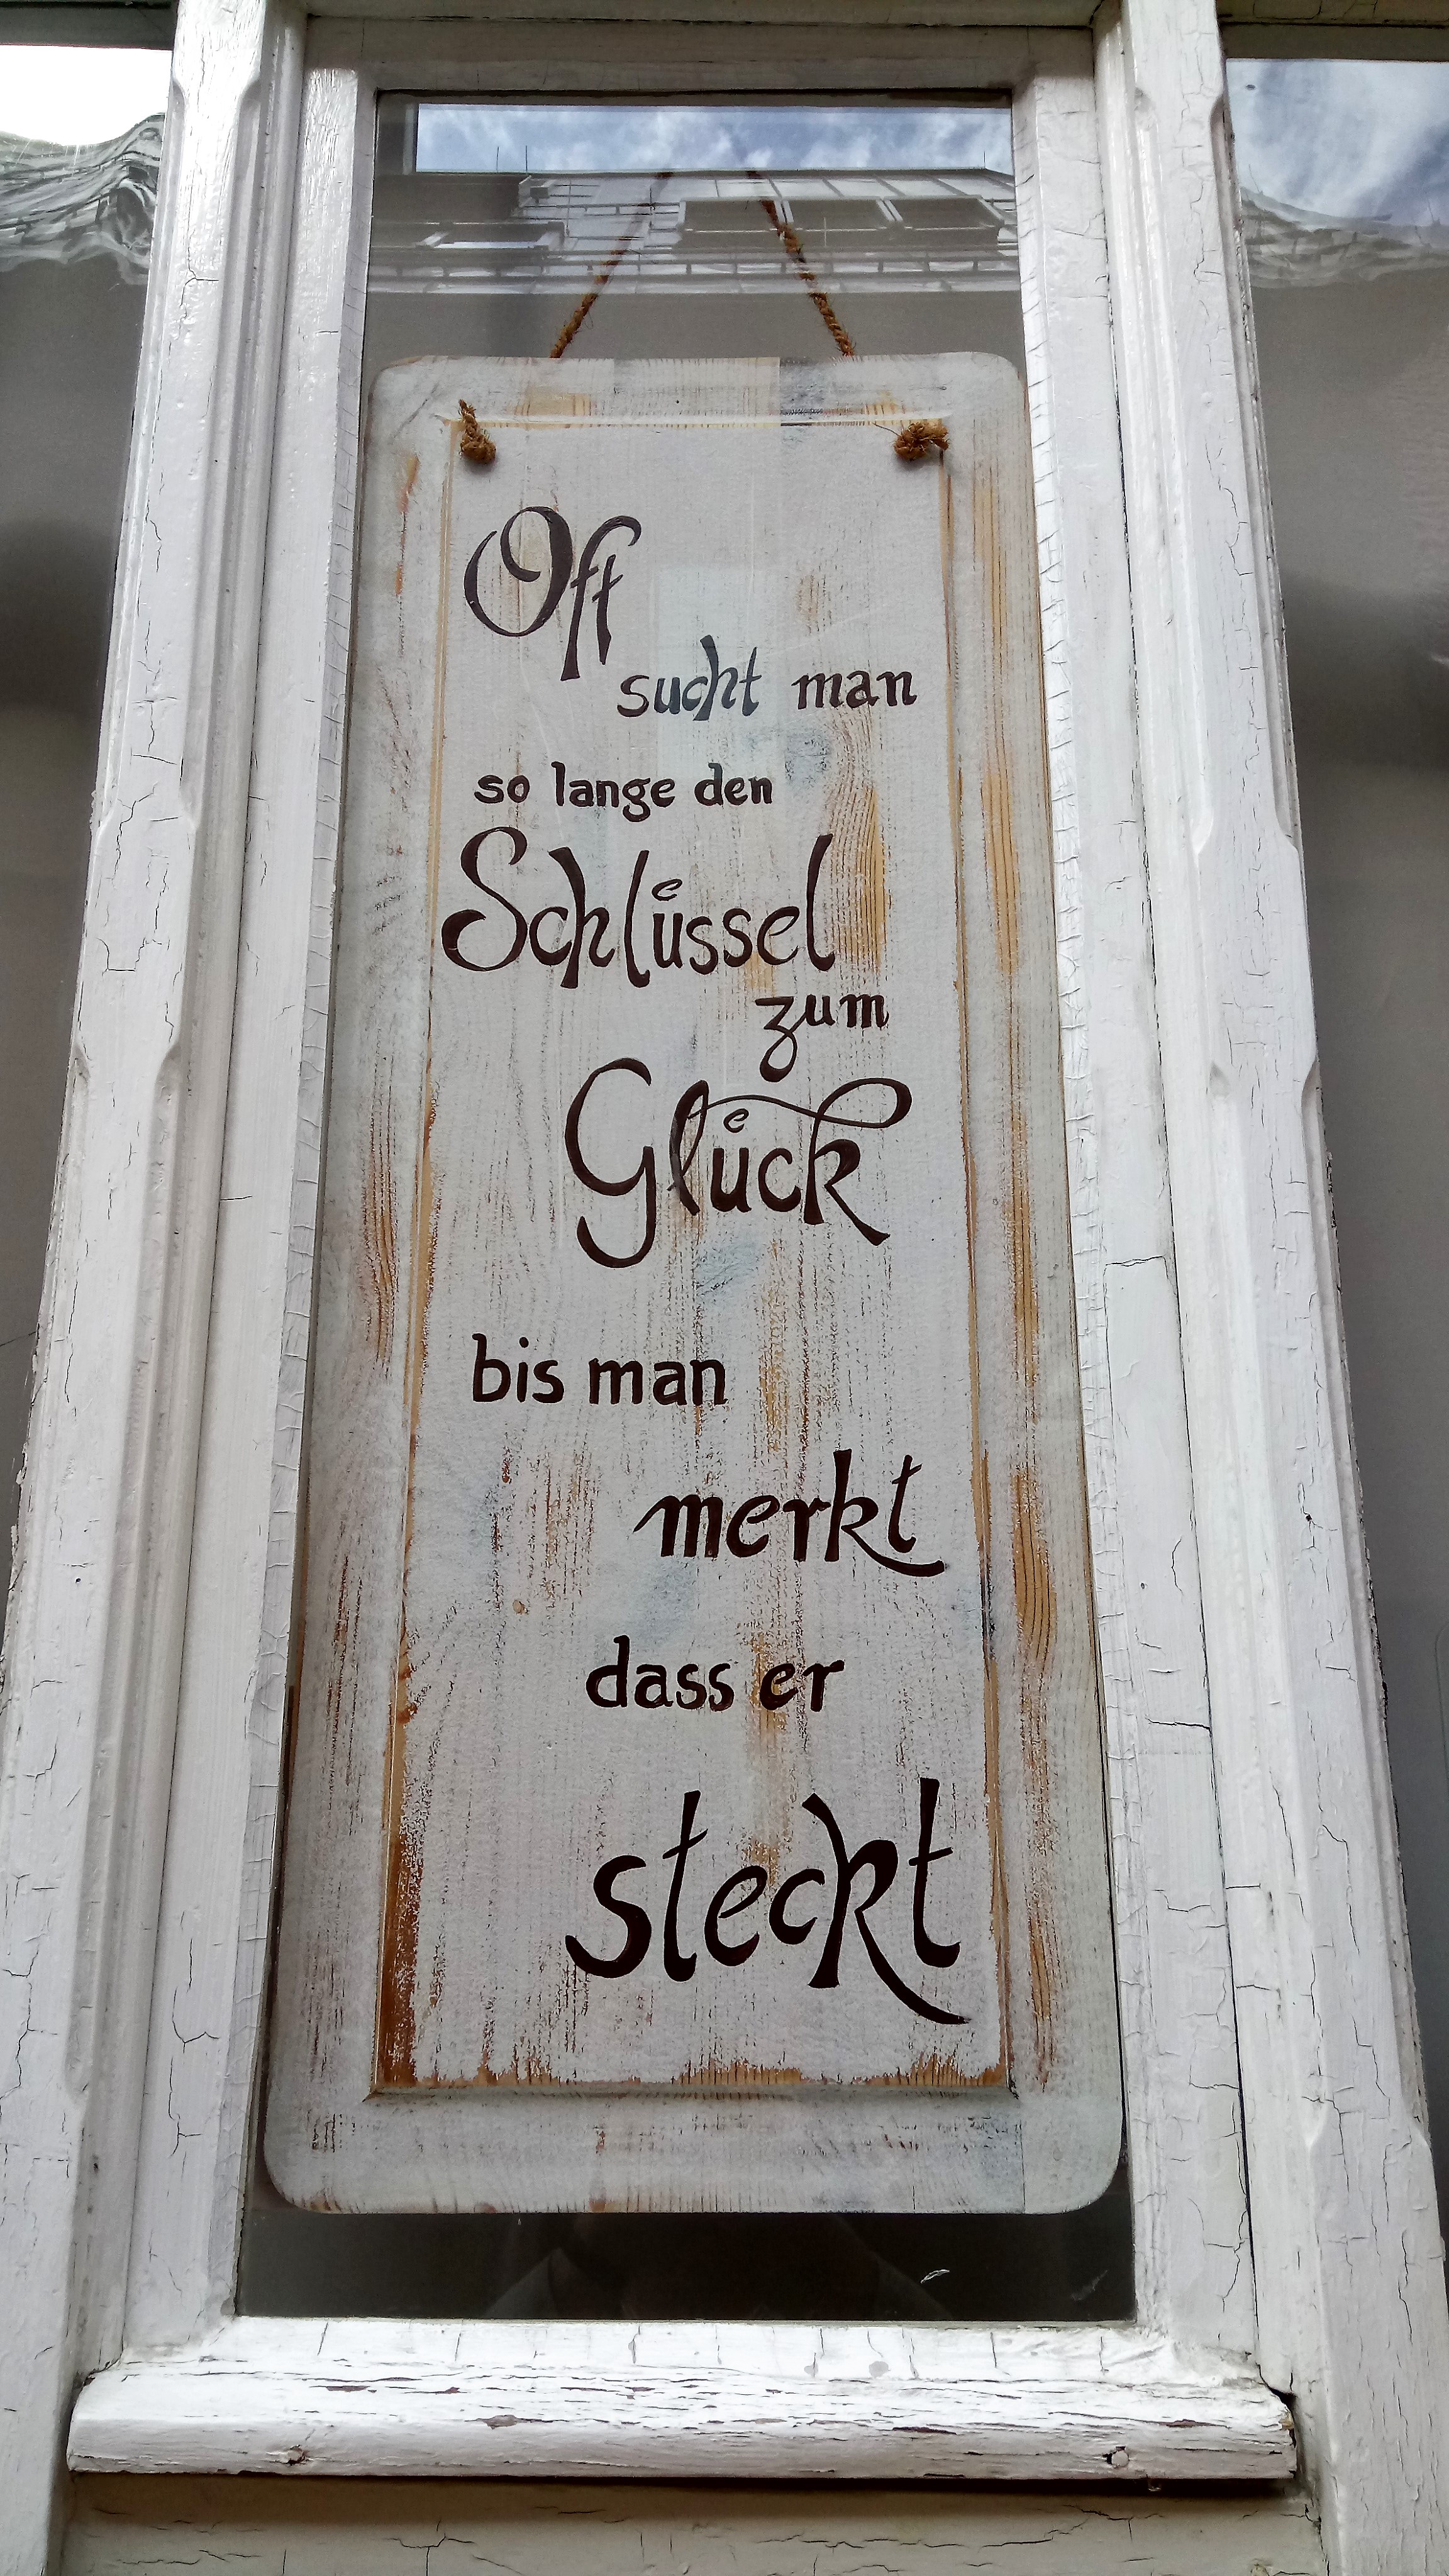 Oft
sucht man
so lange den
Schlüssel
zum
Glück
bis man
merkt
dass er
steckt